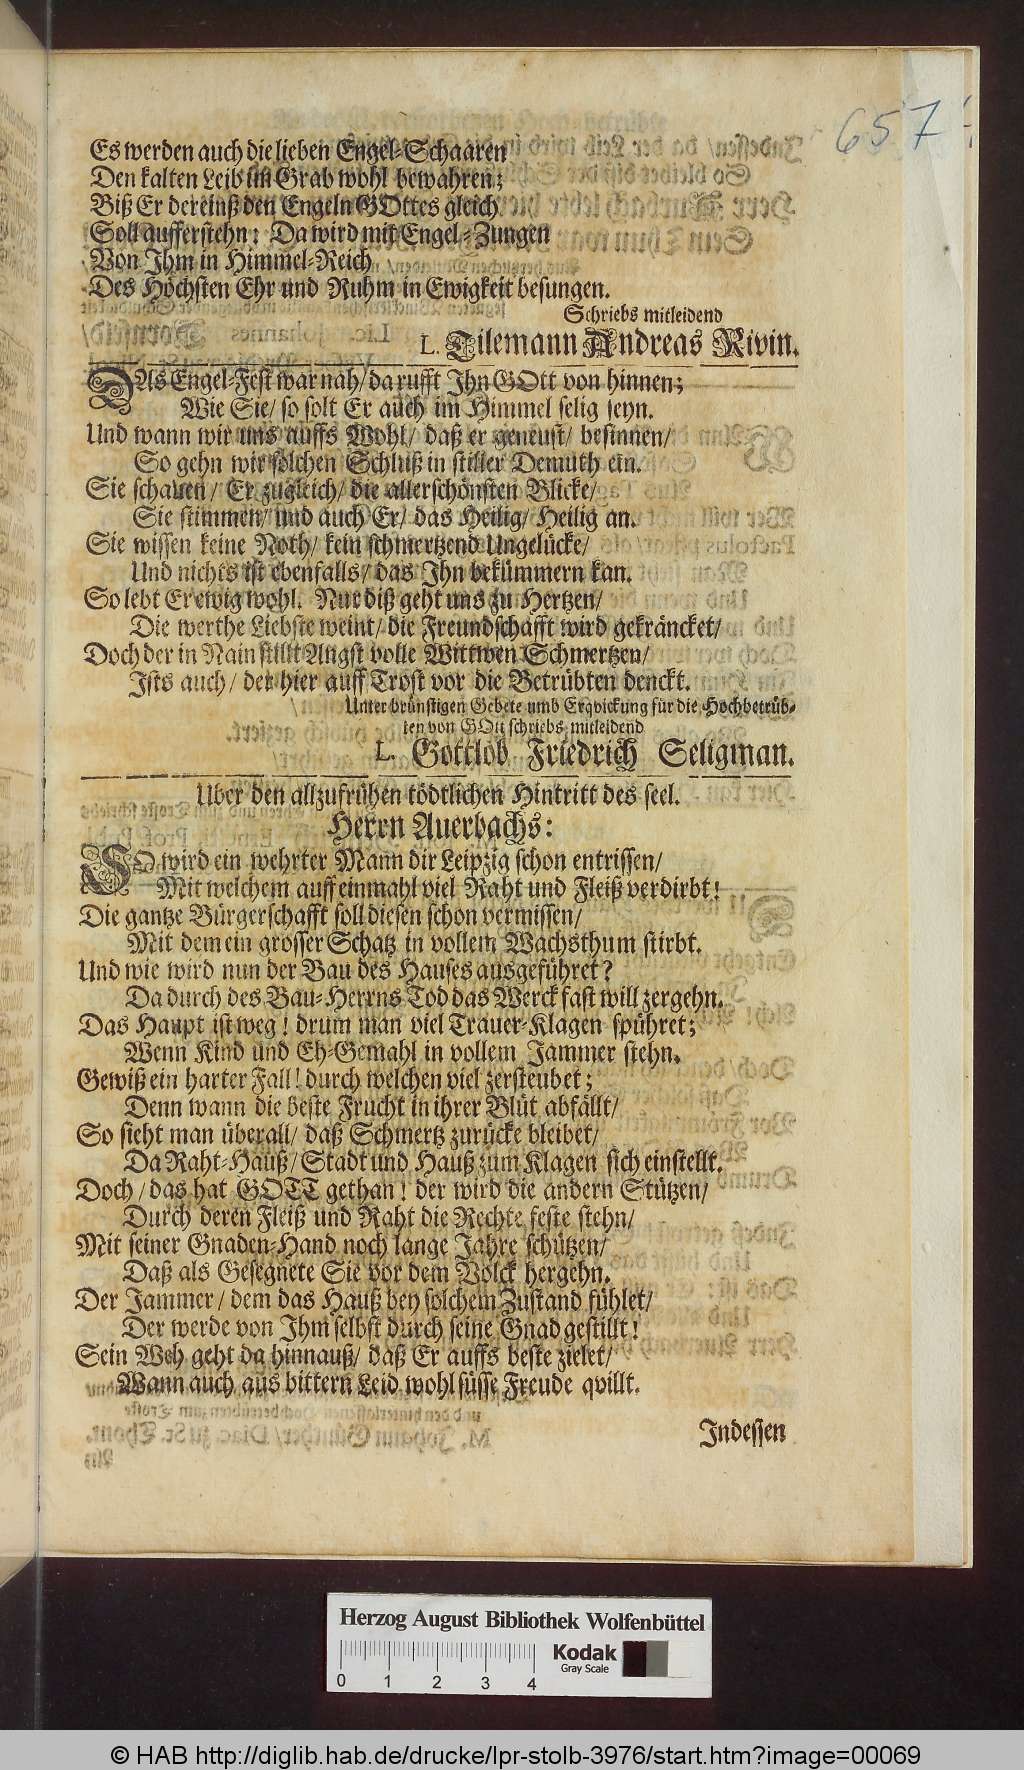 657
Es werden auch die lieben Engel-Schaaren
Den kalten Leib im Grab wohl bewahren;
Biß Er dereinß den Engeln GOttes gleich
Soll aufferstehn: Da wird mit Engel-Zungen
Von Ihm in Himmel-Reich
Des Höchsten Ehr und Ruhm in Ewigkeit besungen.
Schriebs mitleidend
L. Tilemann Andreas Rivin.
DAs Engel-Fest war nah/ da rufft Ihn GOtt von hinnen;
Wie Sie/ so solt Er auch im Himmel selig seyn.
Und wann wir uns auffs Wohl/ daß er geneust/ besinnen/
So gehn wir solchen Schluß in stiller Demuth ein.
Sie schauen/ Er zugleich/ die allerschönsten Blicke/
Sie stimmen/ und auch Er/ das Heilig/ Heilig an.
Sie wissen keine Noth/ kein schmertzend Ungelücke/
Und nichts ist ebenfalls/ das Ihn bekümmern kan.
So lebt Er ewig wohl. Nur diß geht uns zu Hertzen/
Die werthe Liebste weint/ die Freundschafft wird gekräncket/
Doch der in Nain stillt Angst volle Wittwen Schmertzen/
Ists auch/ der hier auff Trost vor die Betrübten denckt.
Unter brünstigen Gebete umb Erqvickung für die Hochbetrüb-
ten von GOtt schriebs mitleidend
L. Gottlob Friedrich Seligman.
Uber den allzufrühen tödtlichen Hintritt des seel.
Herrn Auerbachs:
SO wird ein wehrter Mann dir Leipzig schon entrissen/
Mit welchem auff einmahl viel Raht und Fleiß verdirbt!
Die gantze Bürgerschafft soll diesen schon vermissen/
Mit dem ein grosser Schatz in vollem Wachsthum stirbt.
Und wie wird nun der Bau des Hauses ausgeführet?
Da durch des Bau-Herrns Tod das Werck fast will zergehn.
Das Haupt ist weg! drum man viel Trauer-Klagen spühret;
Wenn Kind und Eh-Gemahl in vollem Jammer stehn.
Gewiß ein harter Fall! durch welchen viel zersteubet;
Denn wann die beste Frucht in ihrer Blüt abfällt/
So sieht man überall/ daß Schmertz zurücke bleibet/
Da Raht-Hauß/ Stadt und Hauß zum Klagen sich einstellt.
Doch/ das hat GOTT gethan! der wird die andern Stützen/
Durch deren Fleiß und Raht die Rechte feste stehn/
Mit seiner Gnaden-Hand noch lange Jahre schützen/
Daß als Gesegnete Sie vor dem Volck hergehn.
Der Jammer/ dem das Hauß bey solchem Zustand fühlet/
Der werde von Ihm selbst durch seine Gnad gestillt!
Sein Weh geht da hinnauß/ daß Er auffs beste zielet/
Wann auch aus bittern Leid wohl süsse Freude qvillt.
Indessen
Herzog August Bibliothek Wolfenbüttel
0 1 2 3 4
Kodak
Gray Scale
© HAB http://diglib.hab.de/drucke/lpr-stolb-3976/start.htm?image=00069